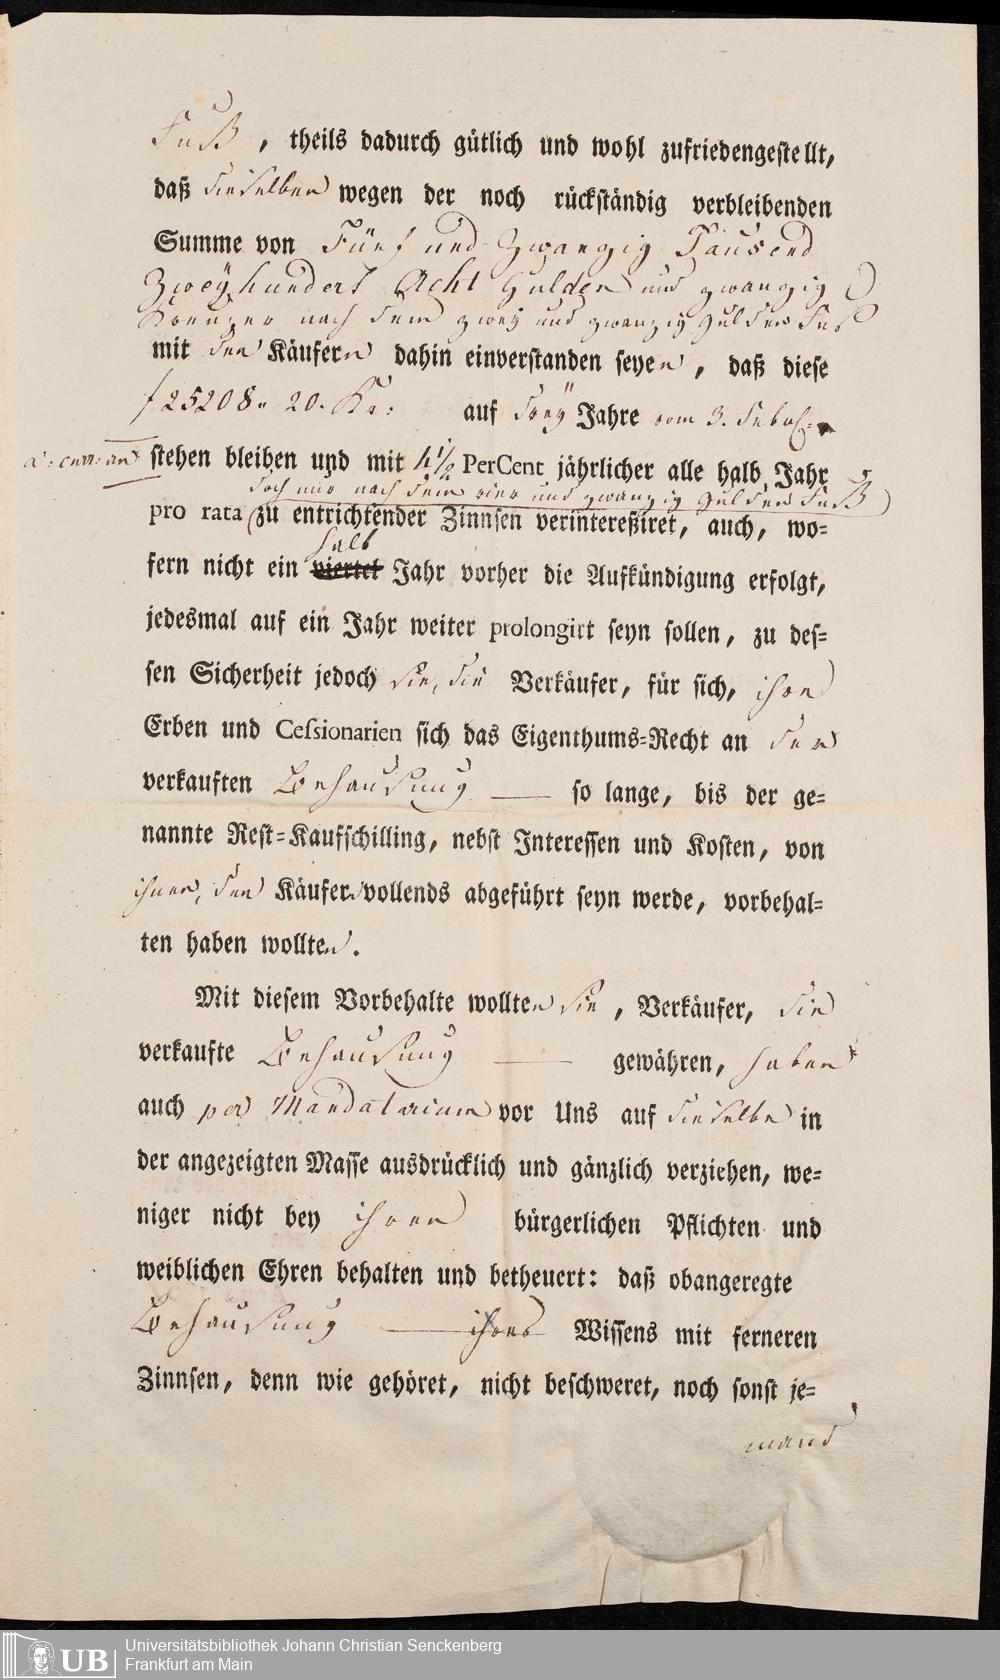 Fuß, theils dadurch gütlich und wohl zufriedengestellt,
daß dieselben wegen der noch rückständig verbleibenden
Summe von Fünf und Zwanzig Tausend
Zweyhundert Acht Gulden und zwanzig
Kreuzer nach dem zwey und zwanzig Gulden Fuß
mit den Käufern dahin einverstanden seyen, daß diese
f 25208. 20. Kr: auf drey Jahre vom 3. Febr:
a: curr: an stehen bleiben und mit 4½ PerCent jährlicher alle halb Jahr
doch nur nach dem vier und zwanzig Gulden Fuß
pro rata zu entrichtender Zinnsen verintereßiret, auch, wo=
halb
fern nicht ein viertel Jahr vorher die Aufkündigung erfolgt,
jedesmal auf ein Jahr weiter prolongirt seyn sollen, zu des=
sen Sicherheit jedoch sie, die Verkäufer, für sich, ihre
Erben und Cessionarien sich das Eigenthums=Recht an der
verkauften Behausung — so lange, bis der ge=
nannte Rest=Kaufschilling, nebst Interessen und Kosten, von
ihnen, den Käufern vollends abgeführt seyn werde, vorbehal=
ten haben wollten.
Mit diesem Vorbehalte wollten sie, Verkäufer, die
verkaufte Behausung — gewähren, haben
auch per Mandatarium vor Uns auf dieselbe in
der angezeigten Masse ausdrücklich und gänzlich verziehen, we=
niger nicht bey ihren bürgerlichen Pflichten und
weiblichen Ehren behalten und betheuert: daß obangeregte
Behausung — ihres Wissens mit ferneren
Zinnsen, denn wie gehöret, nicht beschweret, noch sonst je=
mand
UB Universitätsbibliothek Johann Christian Senckenberg
Frankfurt am Main